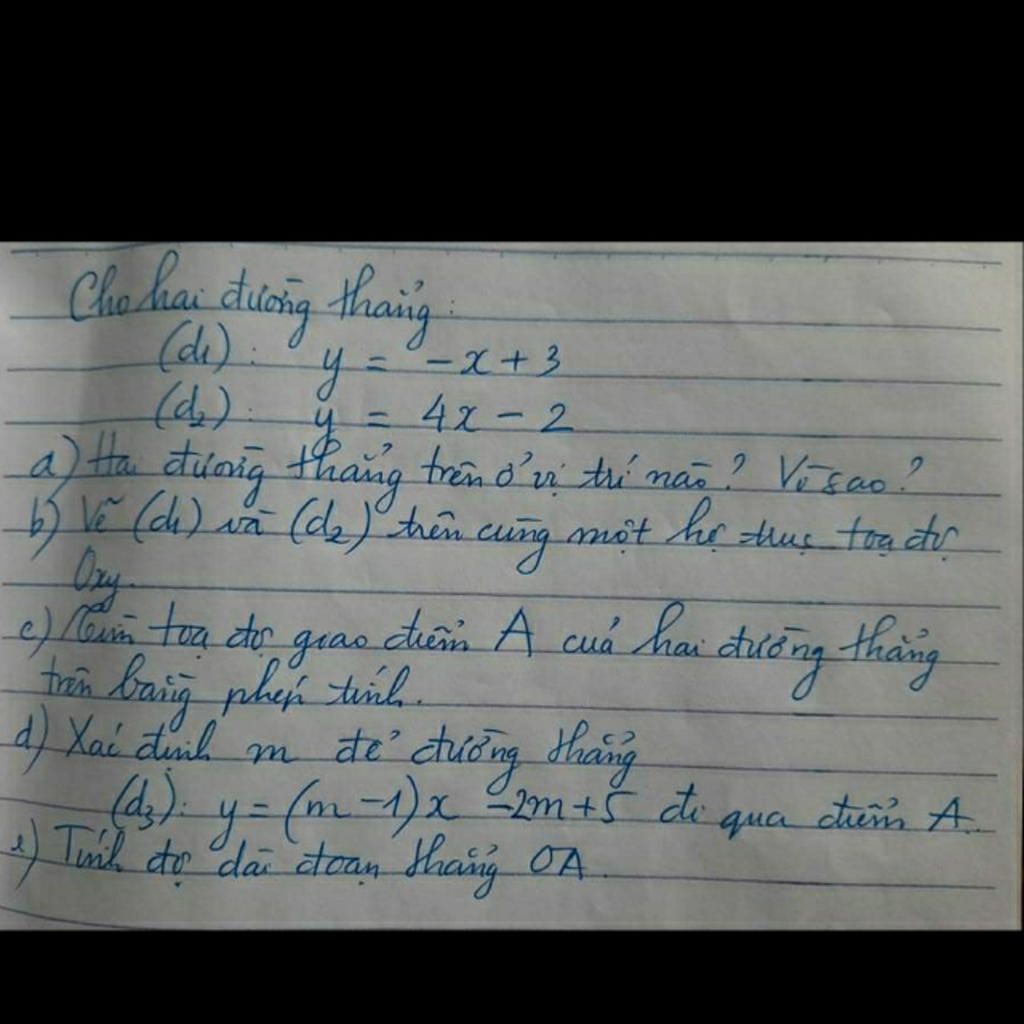 Cho hai đường thẳng:
(d₁): y = -x + 3
(d₂): y = 4x - 2
a) Hai đường thẳng trên ở vị trí nào? Vì sao?
b) Vẽ (d₁) và (d₂) trên cùng một hệ trục toạ độ
Oxy.
c) Tìm toạ độ giao điểm A của hai đường thẳng
trên bằng phép tính.
d) Xác định m để đường thẳng
(d₃): y = (m - 1)x - 2m + 5 đi qua điểm A.
e) Tính độ dài đoạn thẳng OA.